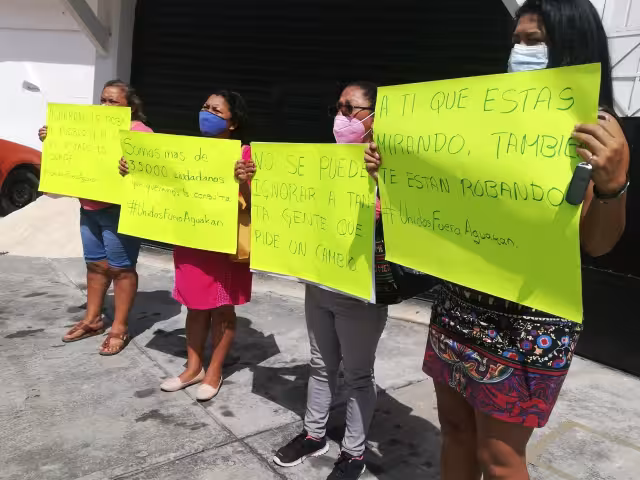 Somos mas de
35000 ciudadanos
que queremos la consulta
#UnidosFueraAguakan
NO SE PUEDE
IGNORAR A TAN
TA GENTE QUE
PIDE UN CAMBIO
A TI QUE ESTAS
MIRANDO, TAMBIE
TE ESTAN ROBANDO
#UnidosFueraAguakan.